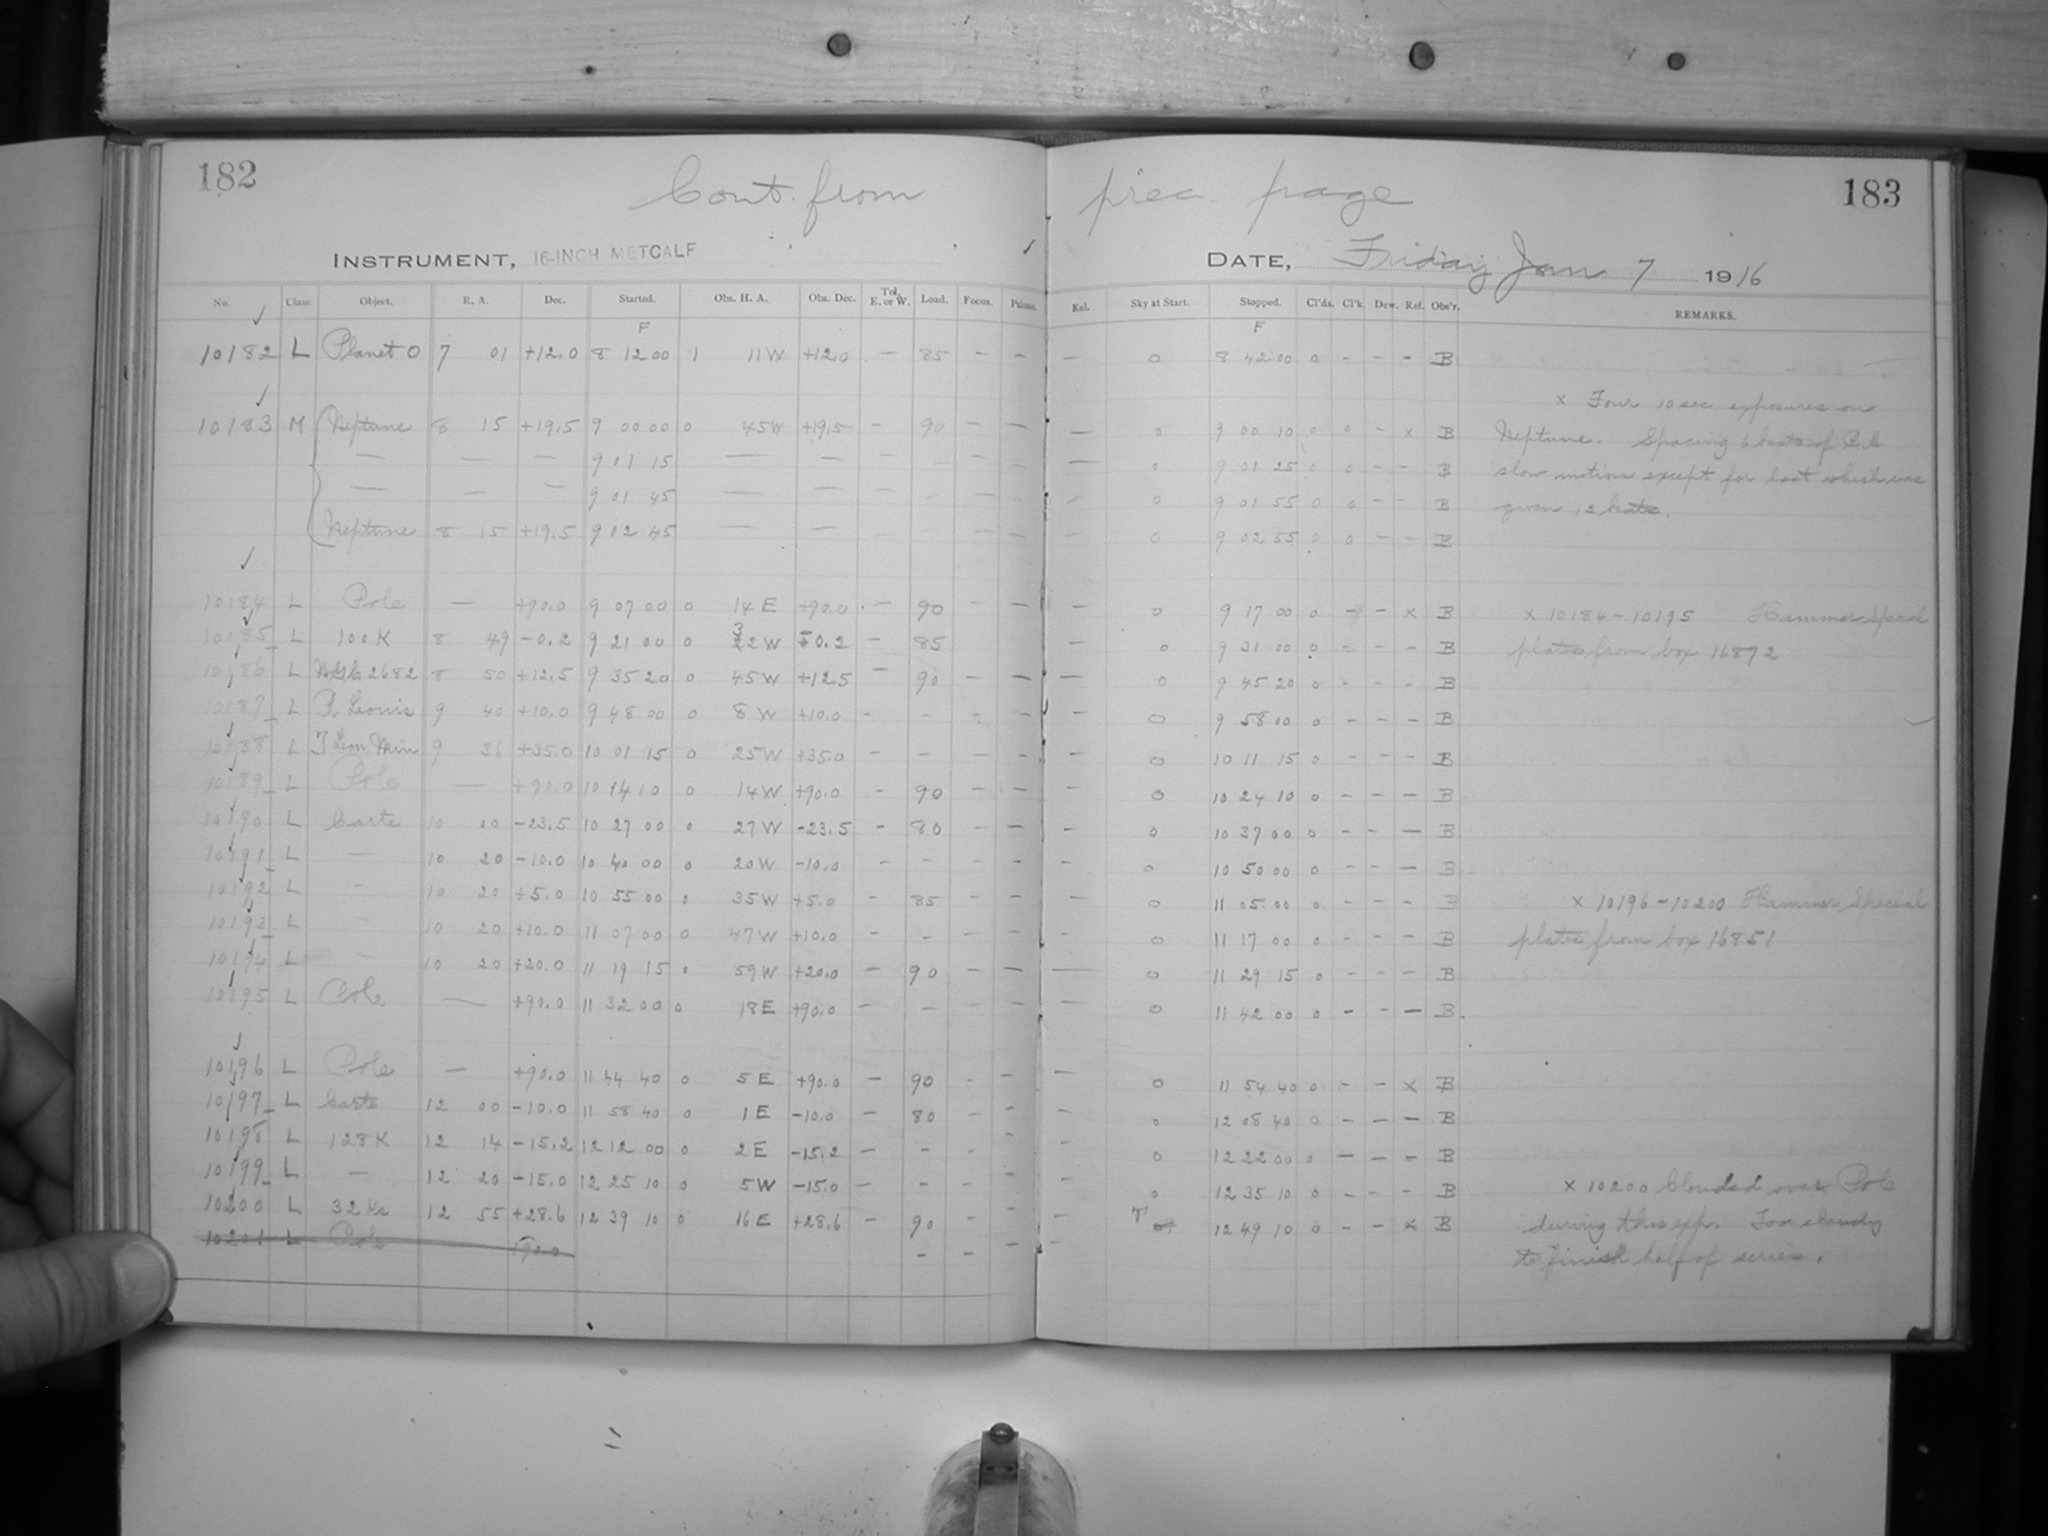 182
Cont. from prec. page
183
INSTRUMENT, 16-INCH METCALF
DATE, Friday Jan 7 1916
No. Class. Object. R. A. Dec. Started. Obs. H. A. Obs. Dec. Tel. E. or W. Load. Focus. Prisms. Eal. Sky at Start. Stopped. Cl'ds. Cl'k Dew. Ref. Obs'r. REMARKS.
F F
10182 L Planet O 7 01 +12.0 8 12 00 1 11 W +12.0 — 85 — — — 0 8 42 00 0 - - - B
x Four 10 sec. exposures on
10183 M Neptune 8 15 +19.5 9 00 00 0 45 W +19.5 — 90 — — — 0 9 00 10 0 0 - x B Neptune. Spacing 6 beats of R.A.
— — — 9 01 15 — — — — — — — — 0 9 01 25 0 0 - - B slow motion except for last which was
— — — 9 01 45 — — — — — — — — 0 9 01 55 0 0 - - B given 12 beats.
Neptune 8 15 +19.5 9 02 45 — — — — — — — 0 9 02 55 0 0 - - B
10184 L Pole — +90.0 9 07 00 0 14 E +90.0 — 90 — — — 0 9 17 00 0 - - x B x 10184-10195 Hammer Special
10185 L 100 K 8 49 -0.2 9 21 00 0 32 W -0.2 — 85 0 9 31 00 0 - - - B plates from box 16872
10186 L N.G.C. 2682 8 50 +12.5 9 35 20 0 45 W +12.5 — 90 — — — 0 9 45 20 0 - - - B
10187 L R Leonis 9 40 +10.0 9 48 00 0 8 W +10.0 - - - - — 0 9 58 00 0 - - - B
10188 L T Leon. Min 9 36 +35.0 10 01 15 0 25 W +35.0 - - - - — 0 10 11 15 0 - - - B
10189 L Pole — +90.0 10 14 10 0 14 W +90.0 - 90 - - — 0 10 24 10 0 - - - B
10190 L Carte 10 00 -23.5 10 27 00 0 27 W -23.5 - 80 - - - 0 10 37 00 0 - - - B
10191 L — 10 20 -10.0 10 40 00 0 20 W -10.0 - - - - - 0 10 50 00 0 - - - B
10192 L - 10 20 +5.0 10 55 00 0 35 W +5.0 - 85 - - - 0 11 05 00 0 - - - B x 10196-10200 Hammer Special
10193 L - 10 20 +10.0 11 07 00 0 47 W +10.0 - - - - - 0 11 17 00 0 - - - B plates from box 16851
10194 L - 10 20 +20.0 11 19 15 0 59 W +20.0 - 90 - - — 0 11 29 15 0 - - - B
10195 L Pole — +90.0 11 32 00 0 18 E +90.0 - - - - — 0 11 42 00 0 - - - B
10196 L Pole — +90.0 11 44 40 0 5 E +90.0 - 90 - - - 0 11 54 40 0 - - x B
10197 L Carte 12 00 -10.0 11 58 40 0 1 E -10.0 - 80 - - - 0 12 08 40 0 - - - B
10198 L 128 K 12 14 -15.2 12 12 00 0 2 E -15.2 - - - - - 0 12 22 00 0 - - - B
10199 L — 12 20 -15.0 12 25 10 0 5 W -15.0 - - - - - 0 12 35 10 0 - - - B x 10200 Clouded over Pole
10200 L 12 55 +28.6 12 39 10 0 16 E +28.6 - 90 - - - 12 49 10 0 - - x B during this exp. Too cloudy
10201 L Pole +90.0 - - - - to finish half of series.